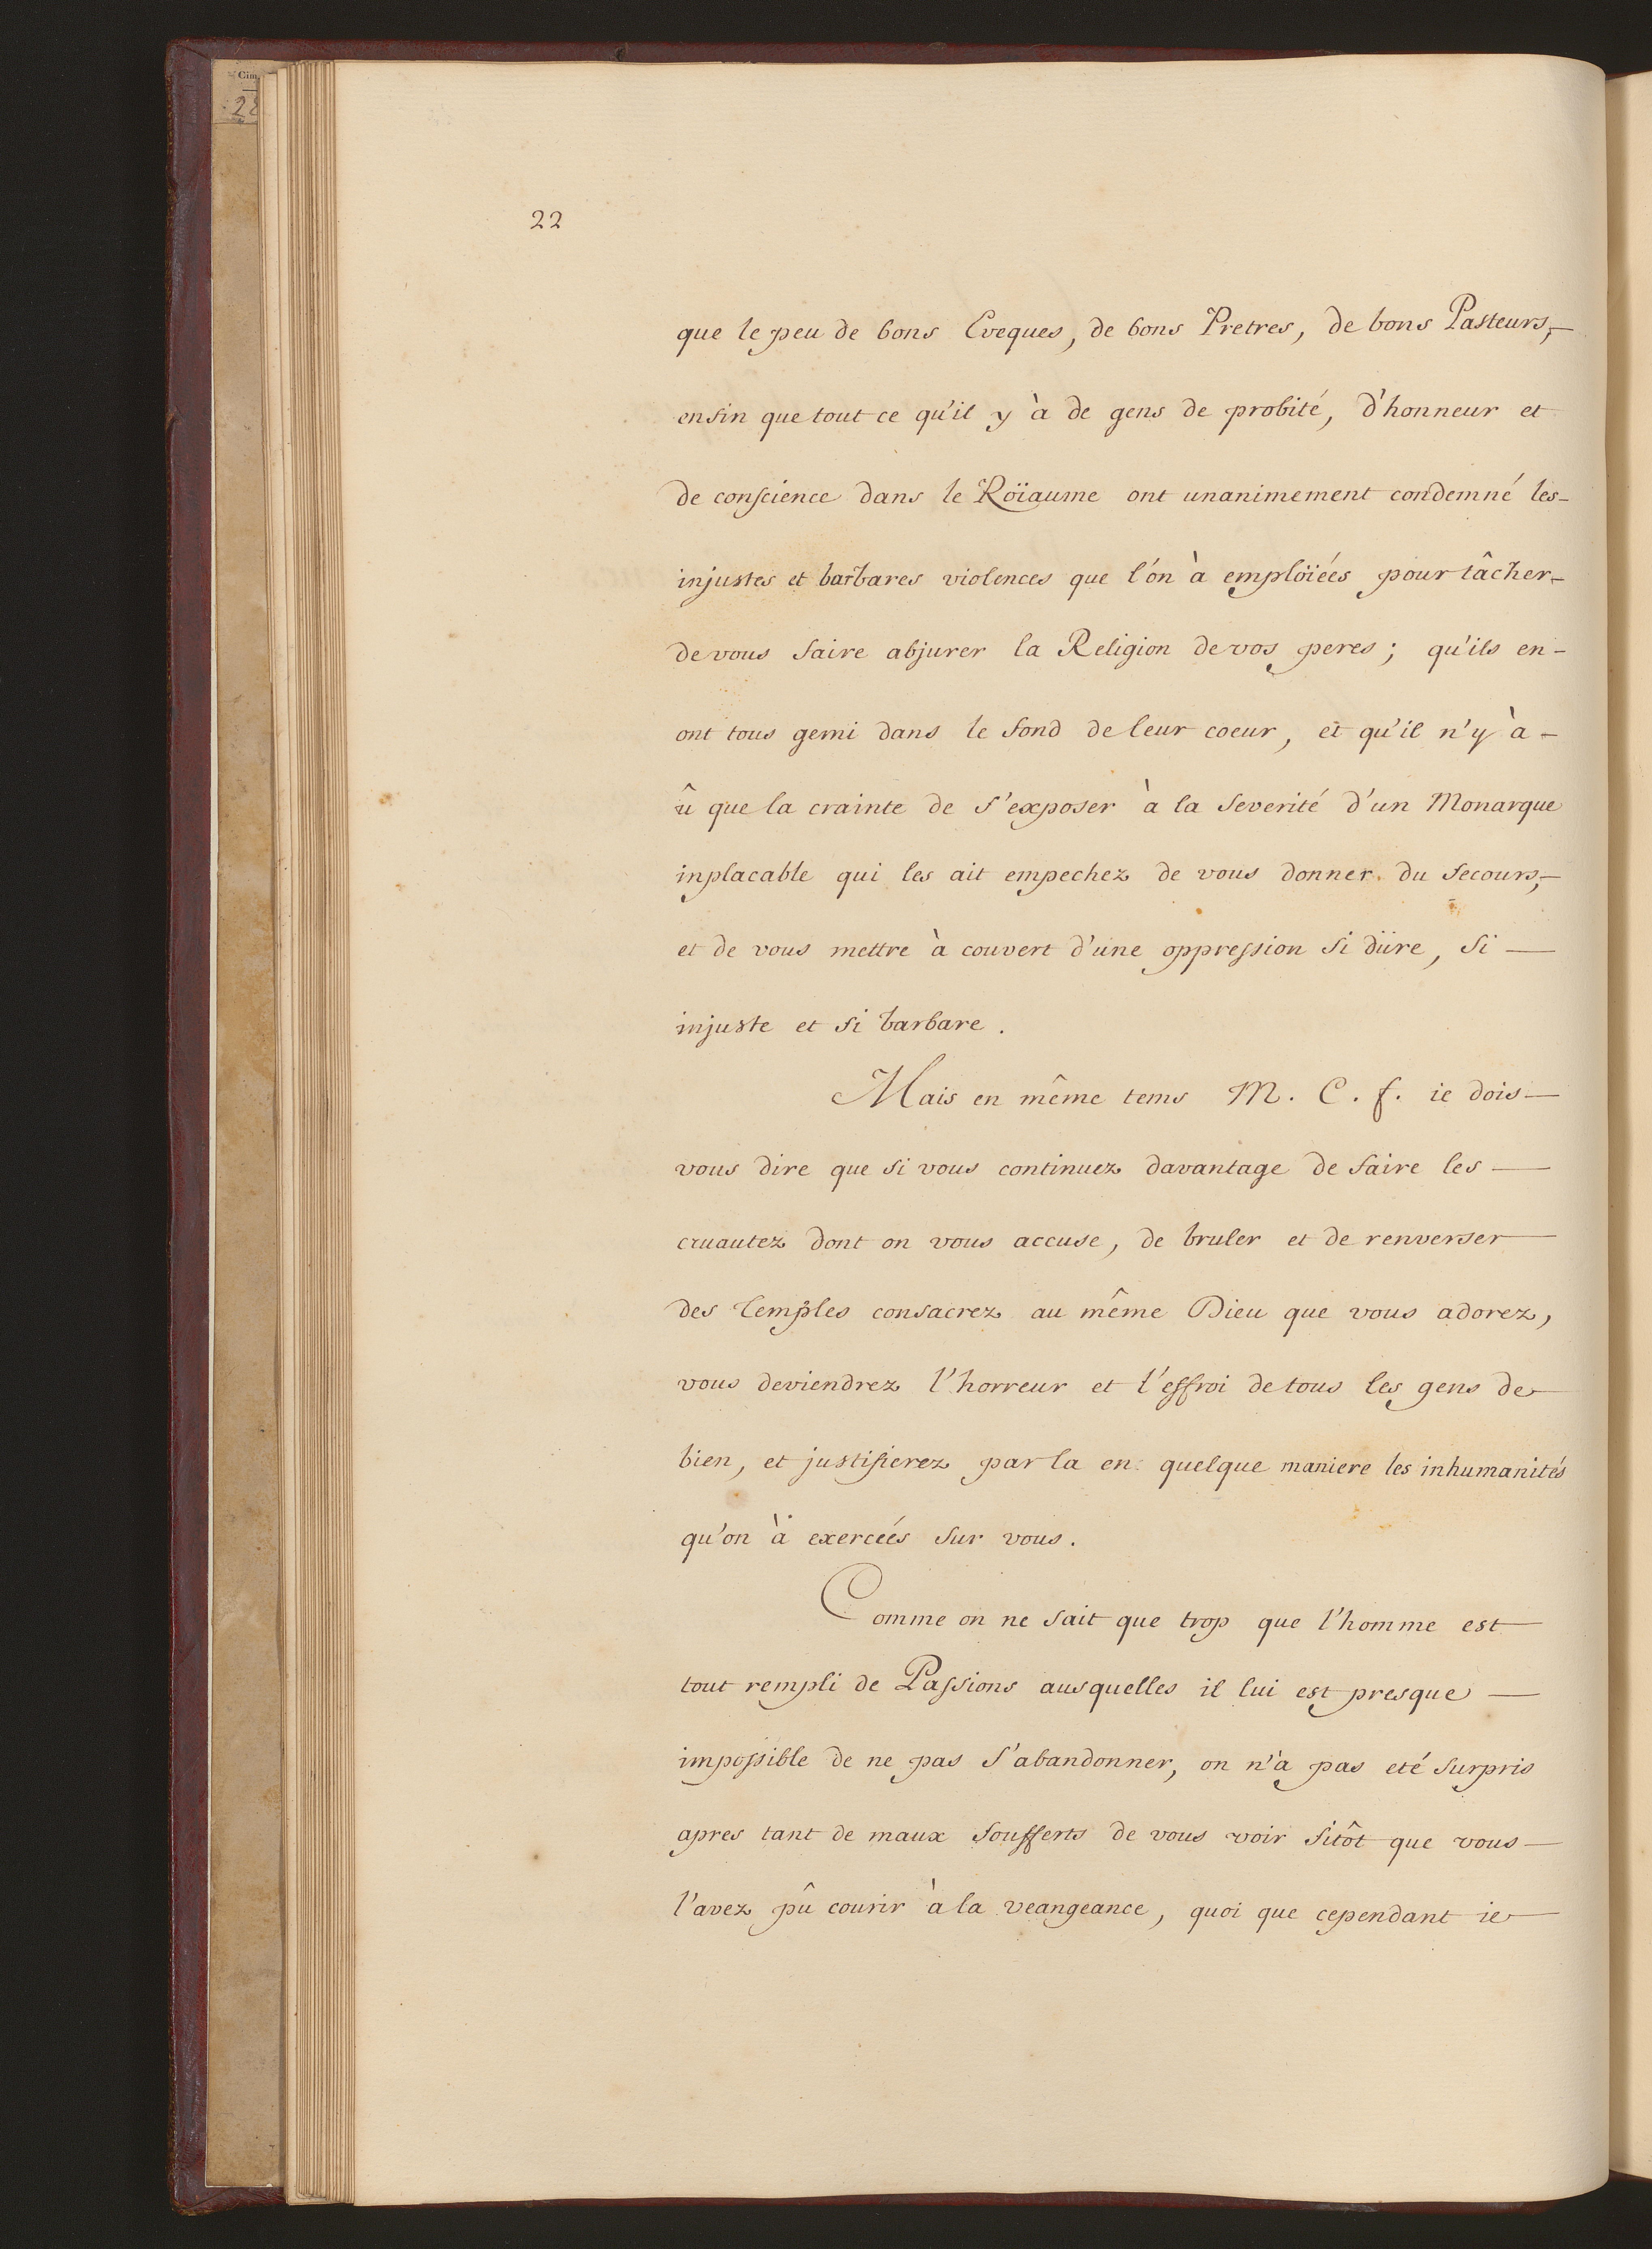 Cim.
28
22
que le peu de bons Eveques, de bons Pretres, de bons Pasteurs,-
enfin que tout ce qu'il y à de gens de probité, d'honneur et
de conscience dans le Röiaume ont unanimement condemné les-
injustes et barbares violences que l'ón à emplöiées pour tâcher-
de vous faire abjurer la Religion de vos peres ; qu'ils en-
ont tous gemi dans le fond de leur coeur, et qu'il n'y à-
û que la crainte de s'exposer à la severité d'un Monarque
inplacable qui les ait empechez de vous donner du secours,-
et de vous mettre à couvert d'une oppression si düre, si —
injuste et si barbare.
Mais en même tems M. C. f. ie dois—
vous dire que si vous continuez davantage de faire les —
cruautez dont on vous accuse, de bruler et de renverser—
des temples consacrez au même Dieu que vous adorez,
vous deviendrez l'horreur et l'effroi de tous les gens de
bien, et justifierez par la en quelque maniere les inhumanités
qu'on à exercées sur vous.
Comme on ne sait que trop que l'homme est—
tout rempli de Passions ausquelles il lui est presque —
impossible de ne pas s'abandonner, on n'à pas eté surpris
apres tant de maux soufferts de vous voir sitôt que vous—
l'avez pû courir à la veangeance, quoi que cependant ie—